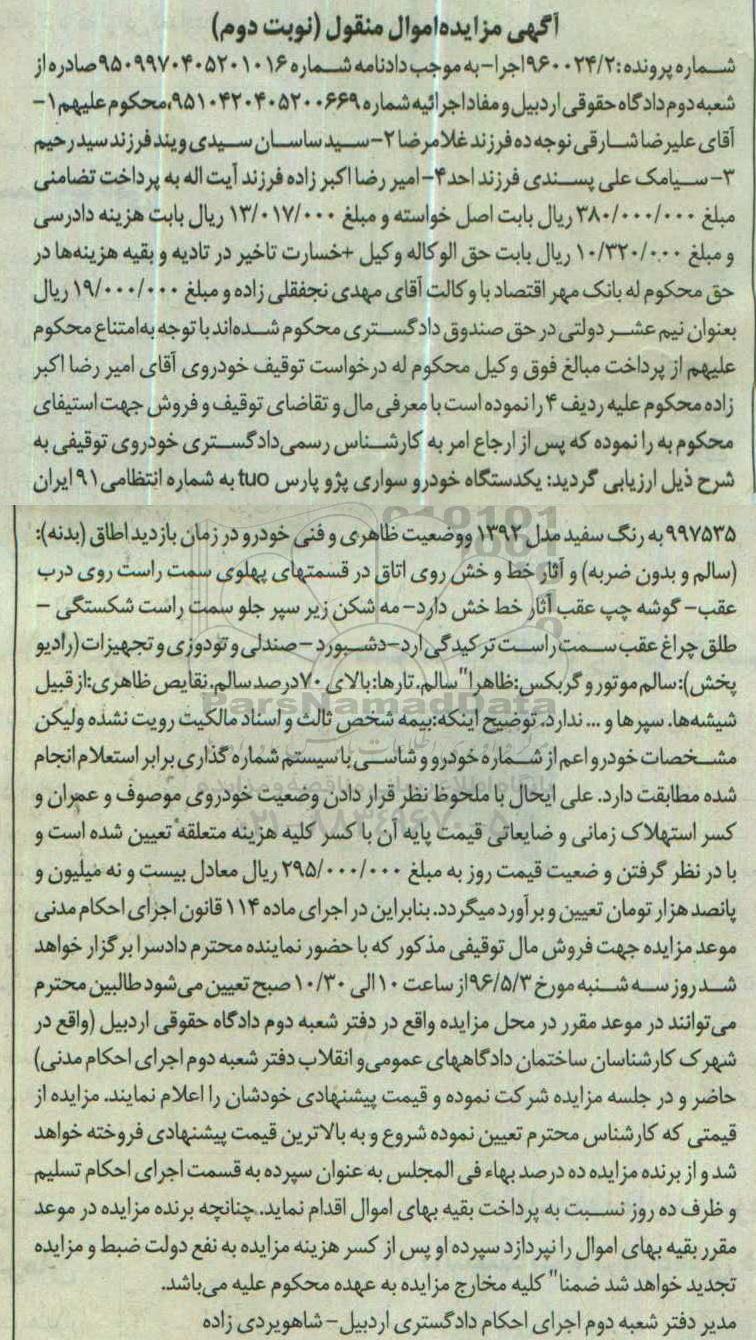 آگهی مزایده اموال منقول (نوبت دوم)
شماره پرونده: ۹۶۰۰۲۴/۲اجرا- به موجب دادنامه شماره ۹۵۰۹۹۷۰۴۰۵۲۰۱۰۱۶صادره از
شعبه دوم دادگاه حقوقی اردبیل و مفاد اجرائیه شماره ۹۵۱۰۴۲۰۴۰۵۲۰۰۶۶۹،محکوم علیهم ۱-
آقای علیرضا شارقی نوجه ده فرزند غلامرضا ۲-سید ساسان سیدی ویند فرزند سید رحیم
۳- سیامک علی پسندی فرزند احد ۴- امیر رضا اکبر زاده فرزند آیت اله به پرداخت تضامنی
مبلغ ۳۸۰/۰۰۰/۰۰۰ ریال بابت اصل خواسته و مبلغ ۱۳/۰۱۷/۰۰۰ ریال بابت هزینه دادرسی
و مبلغ ۱۰/۳۲۰/۰۰۰ ریال بابت حق الوکاله وکیل +خسارت تاخیر در تادیه و بقیه هزینه‌ها در
حق محکوم له بانک مهر اقتصاد با وکالت آقای مهدی نجفقلی زاده و مبلغ ۱۹/۰۰۰/۰۰۰ ریال
بعنوان نیم عشر دولتی در حق صندوق دادگستری محکوم شده‌اند با توجه به امتناع محکوم
علیهم از پرداخت مبالغ فوق وکیل محکوم له درخواست توقیف خودروی آقای امیر رضا اکبر
زاده محکوم علیه ردیف ۴ را نموده است با معرفی مال و تقاضای توقیف و فروش جهت استیفای
محکوم به را نموده که پس از ارجاع امر به کارشناس رسمی دادگستری خودروی توقیفی به
شرح ذیل ارزیابی گردید: یکدستگاه خودرو سواری پژو پارس tuo به شماره انتظامی ۹۱ ایران
۹۹۷۵۳۵ به رنگ سفید مدل ۱۳۹۲ ووضعیت ظاهری و فنی خودرو در زمان بازدید اطاق (بدنه):
(سالم و بدون ضربه) و آثار خط و خش روی اتاق در قسمتهای پهلوی سمت راست روی درب
عقب- گوشه چپ عقب آثار خط خش دارد- مه شکن زیر سپر جلو سمت راست شکستگی -
طلق چراغ عقب سمت راست ترکیدگی ارد-دشبورد -صندلی و تودوزی و تجهیزات (رادیو
پخش): سالم موتور و گربکس:ظاهرا" سالم. تارها: بالای ۷۰درصد سالم. نقایص ظاهری: از قبیل
شیشه‌ها. سپرها و ... ندارد. توضیح اینکه: بیمه شخص ثالث و اسناد مالکیت رویت نشده ولیکن
مشخصات خودرو اعم از شماره خودرو و شاسی با سیستم شماره گذاری برابر استعلام انجام
شده مطابقت دارد. علی ایحال با ملحوظ نظر قرار دادن وضعیت خودروی موصوف و عمران و
کسر استهلاک زمانی و ضایعاتی قیمت پایه آن با کسر کلیه هزینه متعلقه تعیین شده است و
با در نظر گرفتن و ضعیت قیمت روز به مبلغ ۲۹۵/۰۰۰/۰۰۰ ریال معادل بیست و نه میلیون و
پانصد هزار تومان تعیین و برآورد میگردد. بنابراین در اجرای ماده ۱۱۴ قانون اجرای احکام مدنی
موعد مزایده جهت فروش مال توقیفی مذکور که با حضور نماینده محترم دادسرا برگزار خواهد
شد روز سه شنبه مورخ ۹۶/۵/۳از ساعت ۱۰ الی ۱۰/۳۰ صبح تعیین می‌شود طالبین محترم
می‌توانند در موعد مقرر در محل مزایده واقع در دفتر شعبه دوم دادگاه حقوقی اردبیل (واقع در
شهرک کارشناسان ساختمان دادگاههای عمومی و انقلاب دفتر شعبه دوم اجرای احکام مدنی)
حاضر و در جلسه مزایده شرکت نموده و قیمت پیشنهادی خودشان را اعلام نمایند. مزایده از
قیمتی که کارشناس محترم تعیین نموده شروع و به بالاترین قیمت پیشنهادی فروخته خواهد
شد و از برنده مزایده ده درصد بهاء فی المجلس به عنوان سپرده به قسمت اجرای احکام تسلیم
و ظرف ده روز نسبت به پرداخت بقیه بهای اموال اقدام نماید. چنانچه برنده مزایده در موعد
مقرر بقیه بهای اموال را نپردازد سپرده او پس از کسر هزینه مزایده به نفع دولت ضبط و مزایده
تجدید خواهد شد ضمنا" کلیه مخارج مزایده به عهده محکوم علیه می‌باشد.
مدیر دفتر شعبه دوم اجرای احکام دادگستری اردبیل- شاهویردی زاده
ParsNamadData